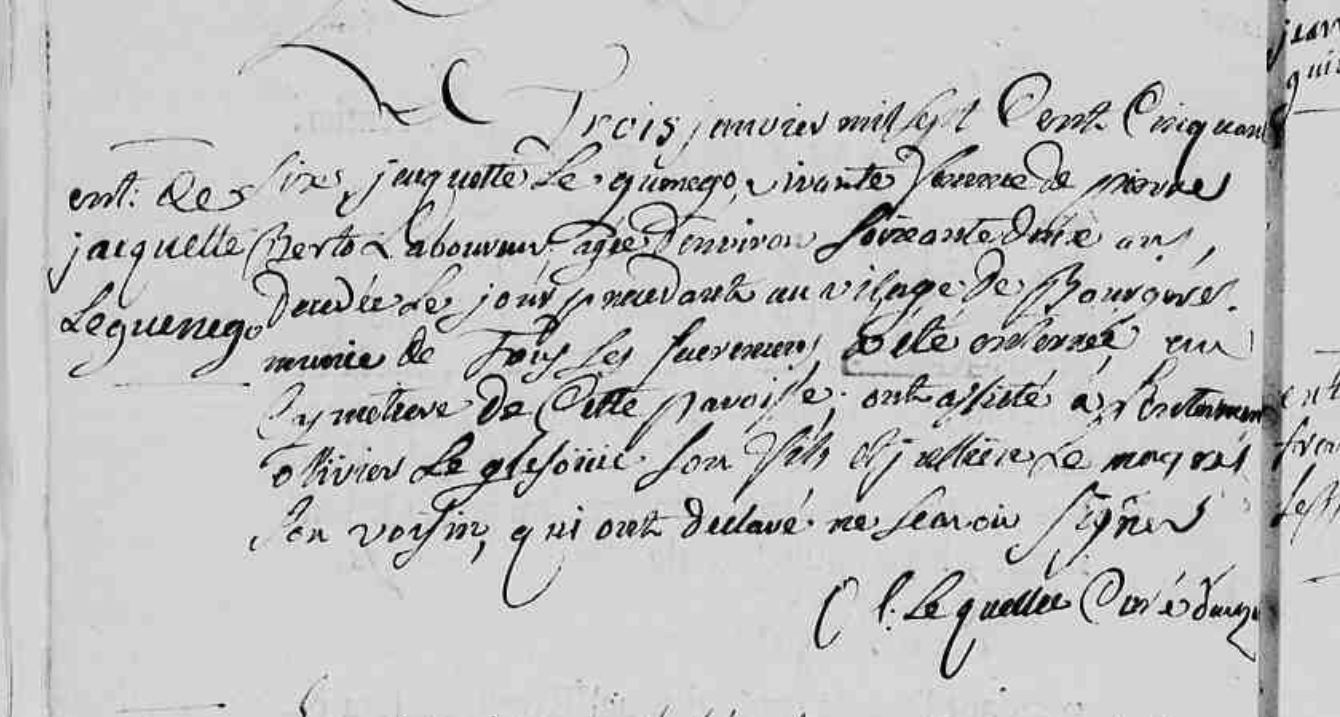 ent: de
jacquette
Le guenego
Le Trois janvier mil sept Cent Cinquan
Six, jacquette Le guenego, vivante femme de pierre
Berto Laboureur, agée d'environ soixante dixe ans,
decedée Le jour précedent au vilage de
munie de Tous Les sacremens, a été enterrée au
Cymetiere de Cette paroisse, ont assisté à l'enterrement
ollivier Le glesouic son fils et jullien Le
son voisin, qui ont declaré ne scavoir signer
Le quellec Curé